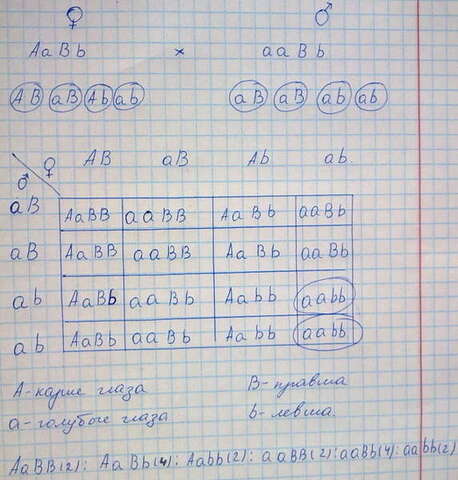 ♀ ♂
AaBb × aaBb
AB aB Ab ab aB aB ab ab
♀ AB aB Ab ab
♂
aB AaBB aaBB AaBb aaBb
aB AaBB aaBB AaBb aaBb
ab AaBb aaBb Aabb aabb
ab AaBb aaBb Aabb aabb
A- карие глаза B- правша
a- голубые глаза b- левша.
AaBB(2): AaBb(4): Aabb(2): aaBB(2): aaBb(4): aabb(2)